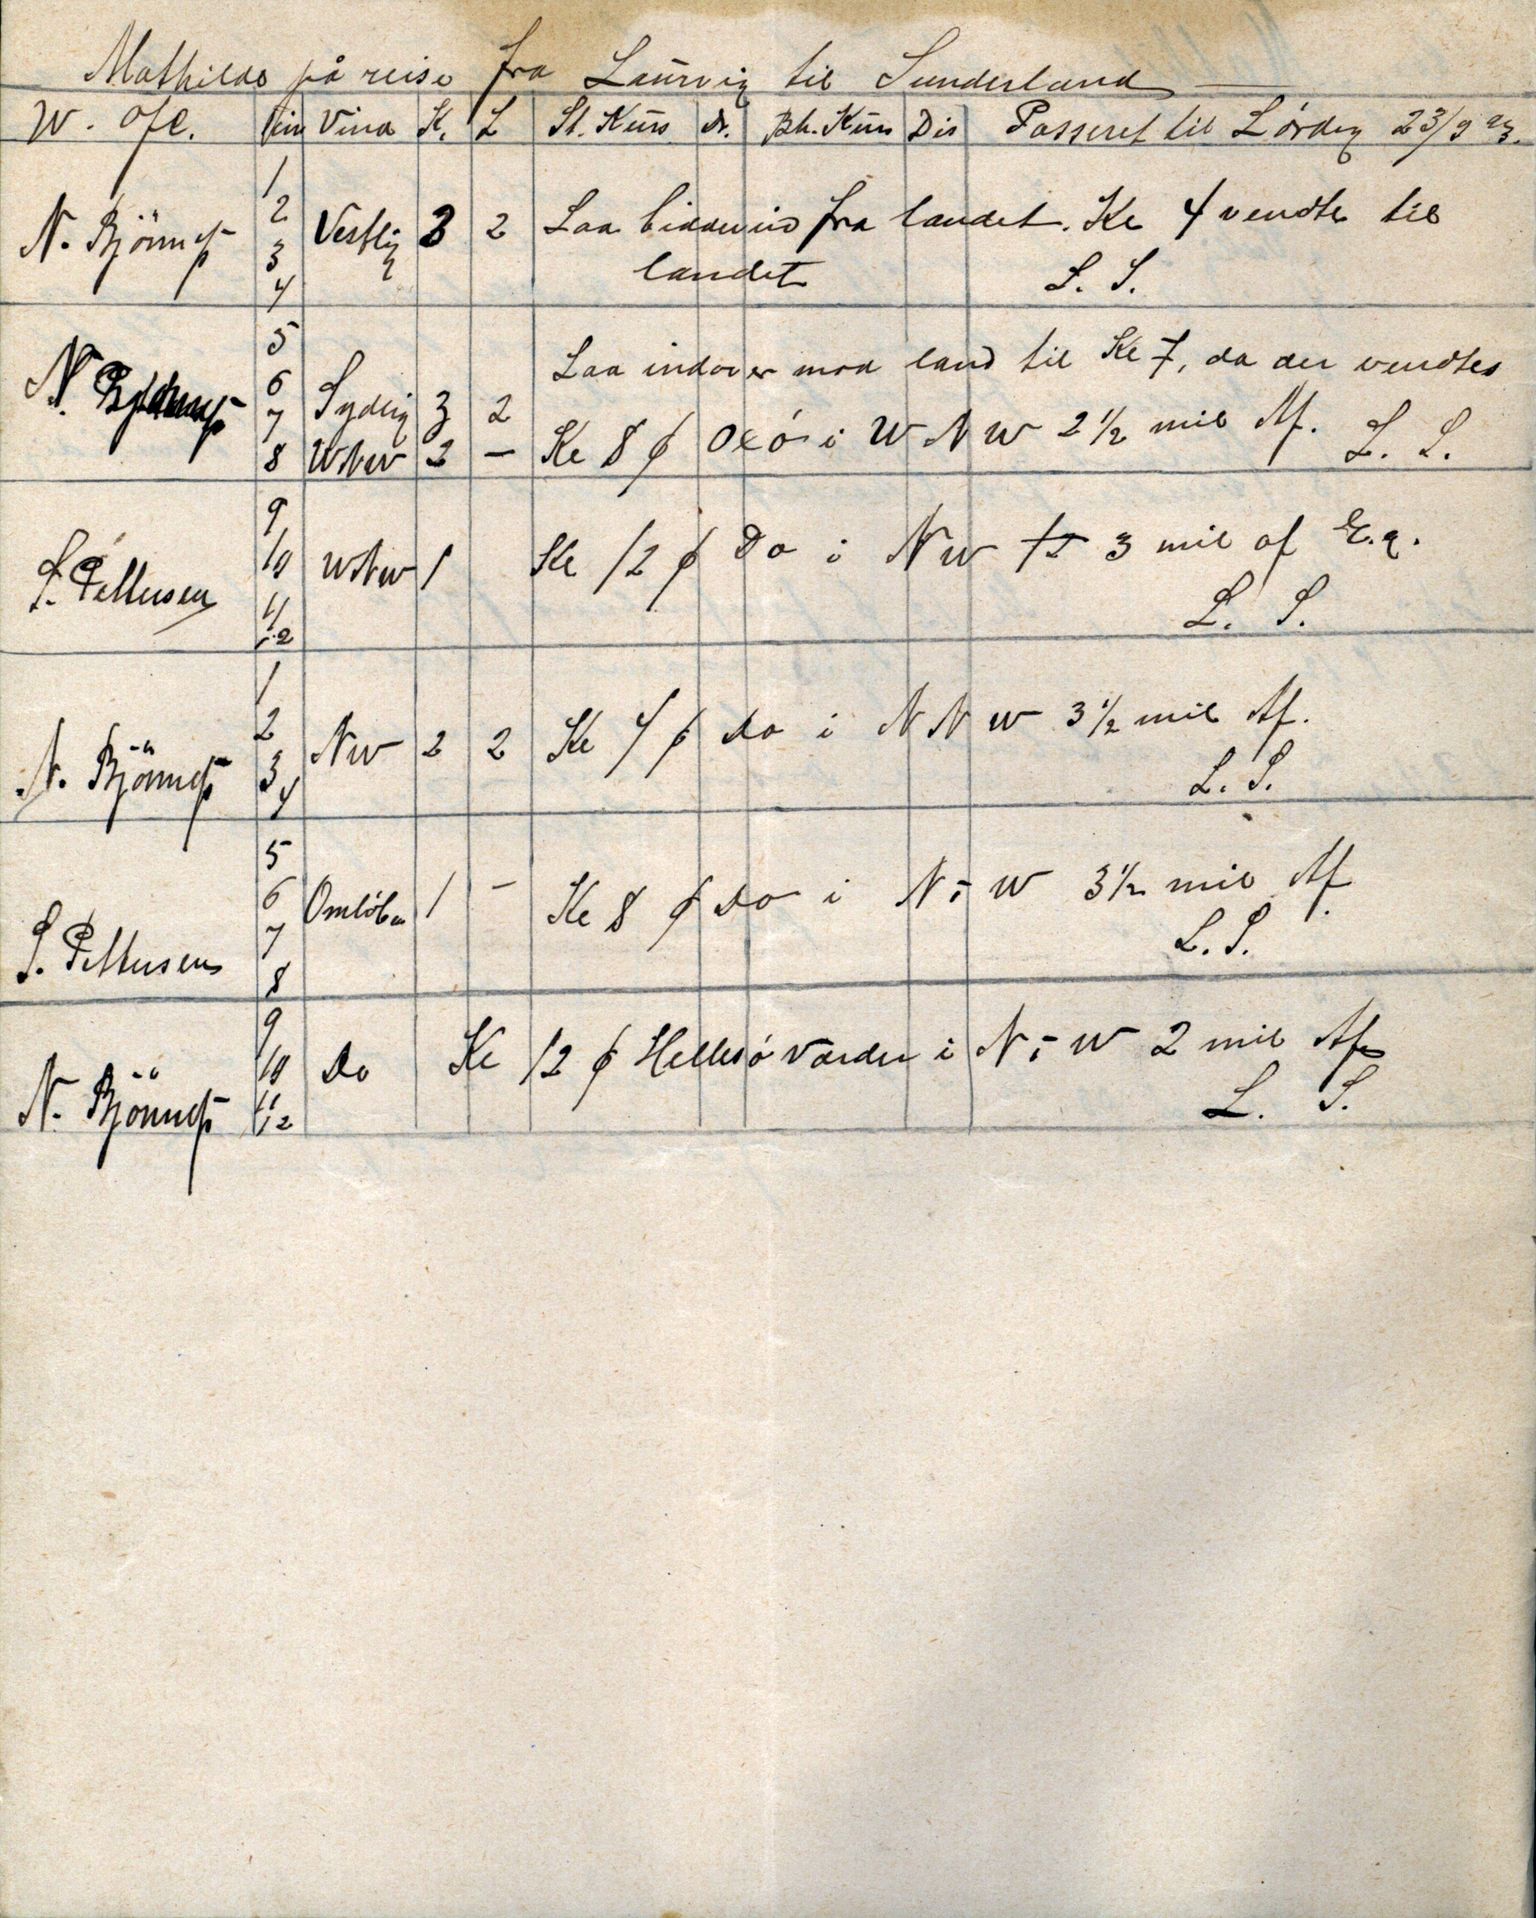 Mathilde på reise fra Laurvig til Sunderland
W. Ofc. Tim Vind K. L St. Kurs Dr. Bh. Kurs Dis Passeret til Lørdag 23/9 93.
1
2
3
4
N. Bjönnes Vestlig 3 2 Laa bidevind fra landet. Kl 4 vendte til
landet L. S.
5
6
7
8
N. Laa indover mod land til Kl 7, da der vendtes
Sydlig 3 2
WNW 2 — Kl 8 p Oxö i WNW 2 1/2 mil Af. L. S.
9
10
11
12
S. Pettersen WNW 1 Kl 12 p Do i NW 3 mil af E.g.
L. S.
1
2
3
4
N. Bjönnes NW 2 2 Kl 4 p Do i NNW 3 1/2 mil Af.
L. S.
5
6
7
8
S. Pettersen Omlöbn 1 - Kl 8 p Do i N-W 3 1/2 mil Af
L. S.
9
10
11
12
N. Bjönnes Do Kl 12 p Hellesö Varder i N-W 2 mil Af
L. S.